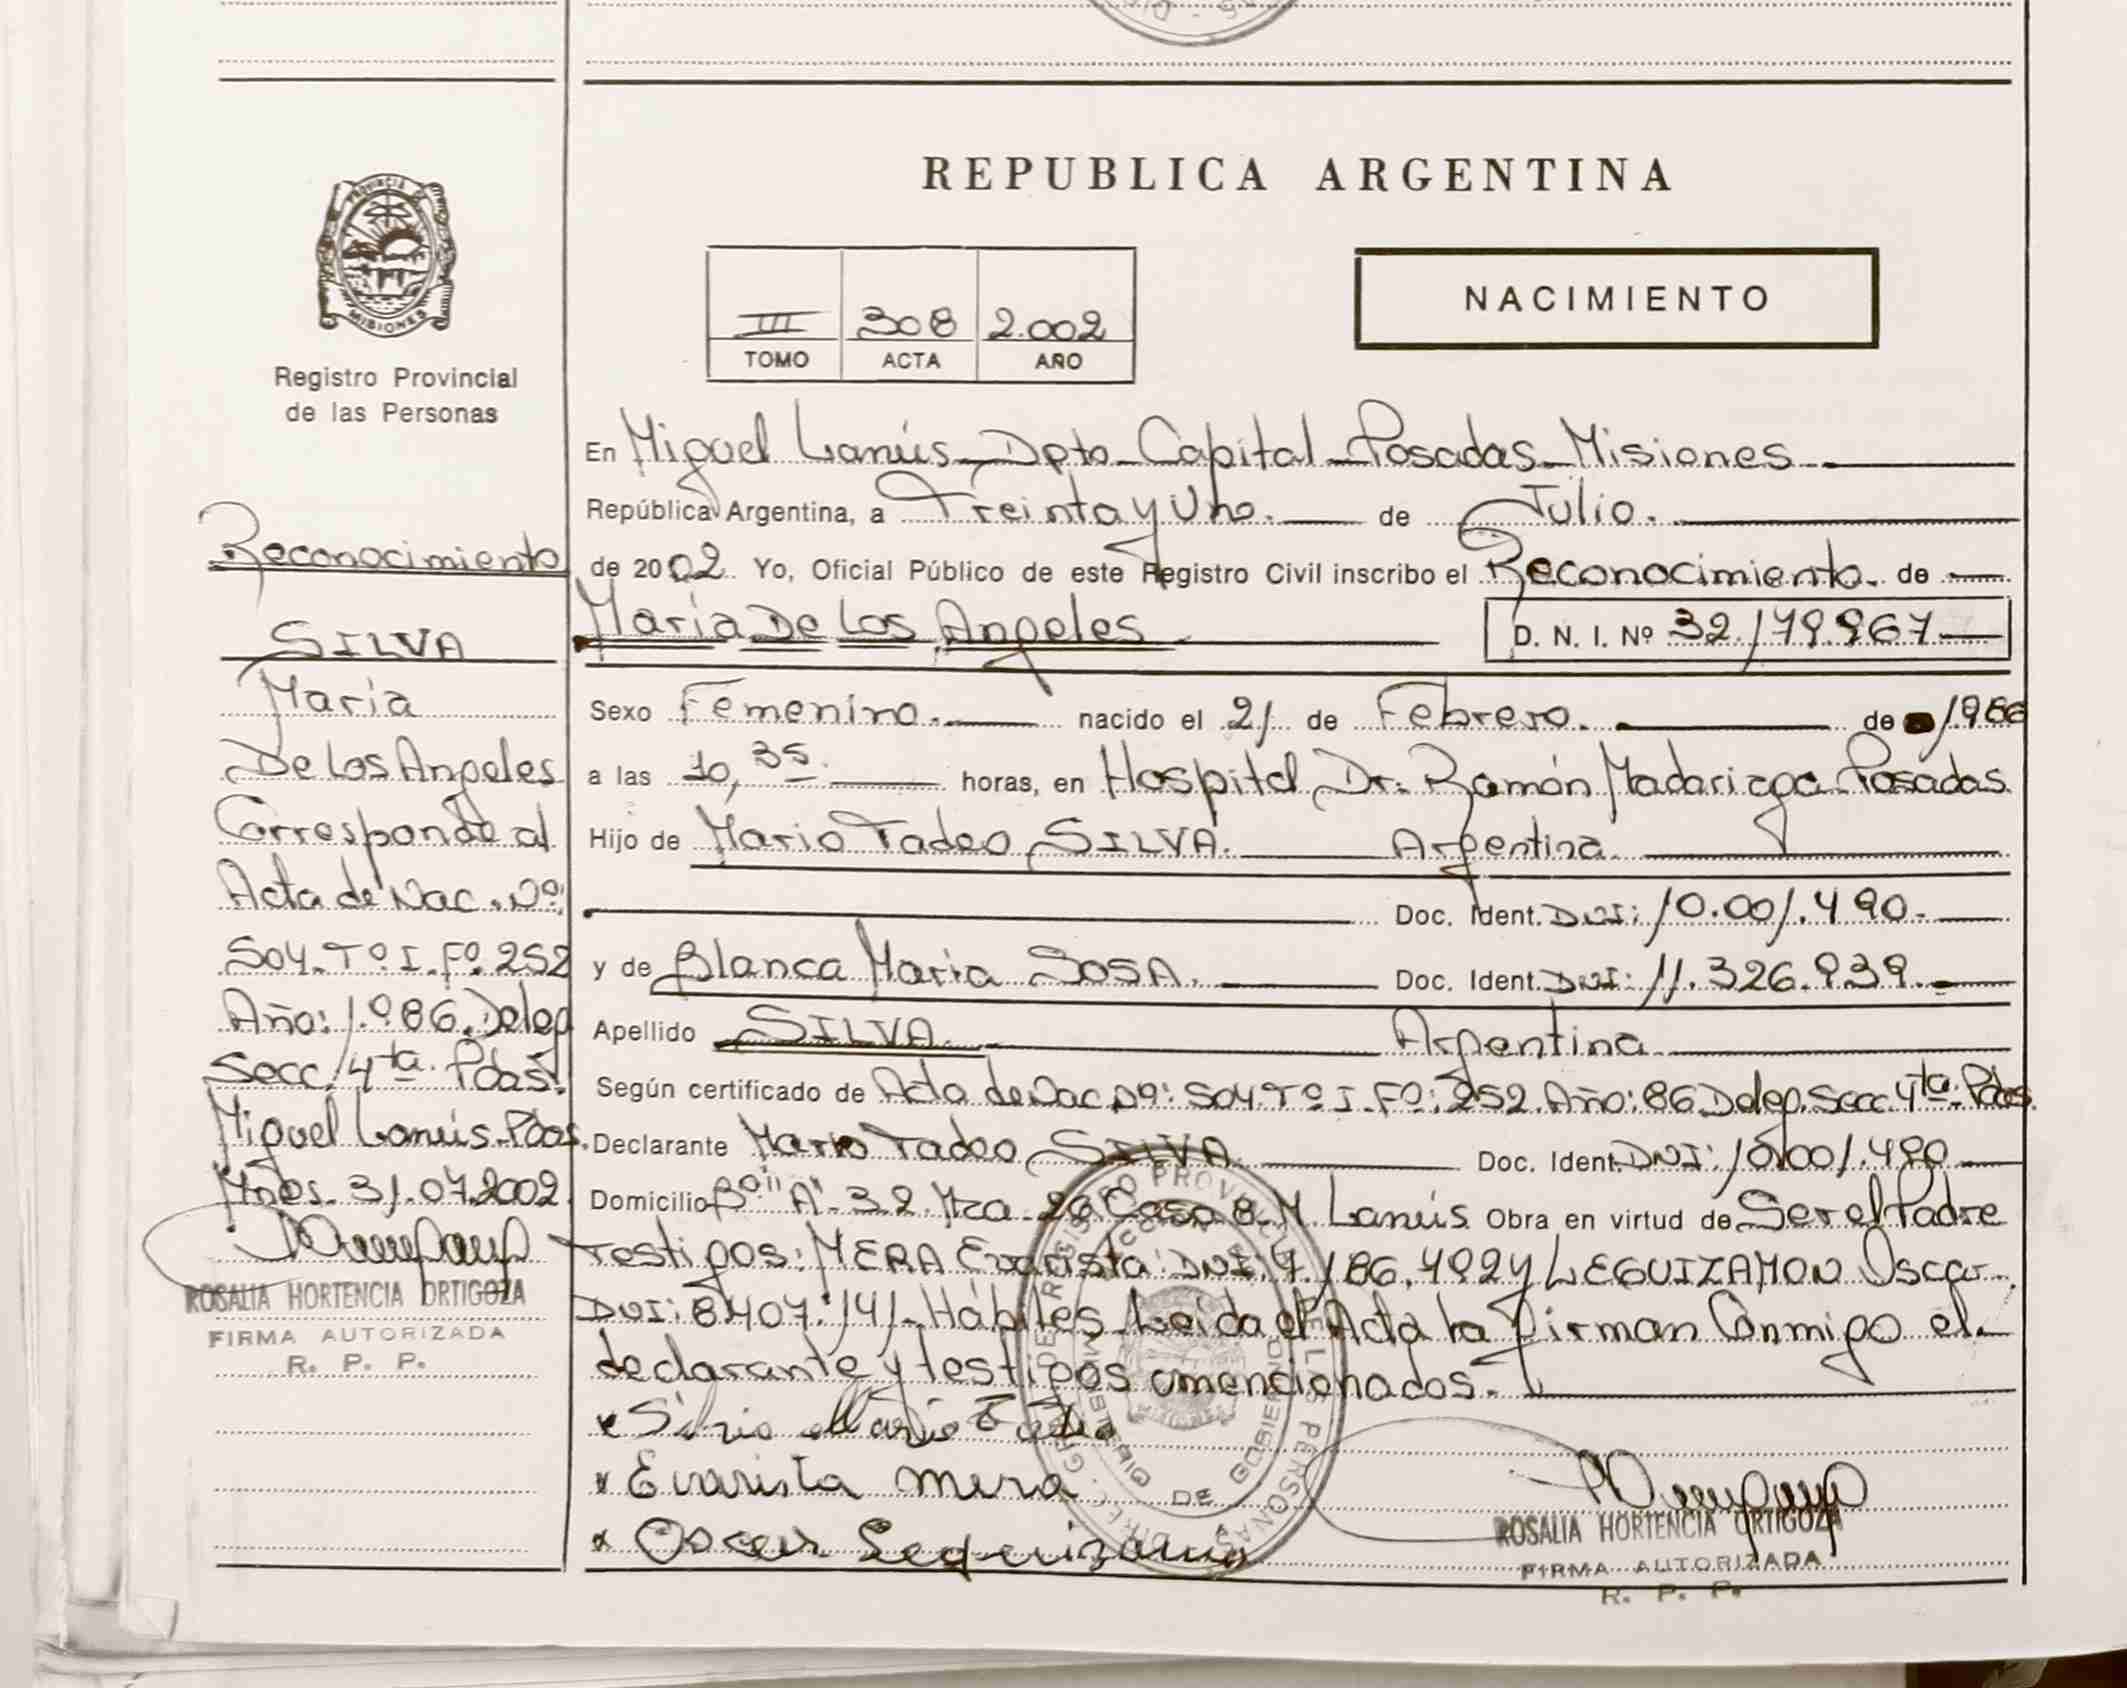 REPUBLICA ARGENTINA
NACIMIENTO
III 308 2.002
TOMO ACTA AÑO
PROVINCIA DE MISIONES
Registro Provincial
de las Personas
Reconocimiento
SILVA
María
De Los Angeles
Corresponde al
Acta de Nac. Nº:
504. Tº. I. Fº. 252
Año: 1.986. Deleg
Secc. 4ta. Pdas.
Miguel Lanús-Pdas.
Mnes. 31.07.2002.
ROSALIA HORTENCIA ORTIGOZA
FIRMA AUTORIZADA
R. P. P.
En Miguel Lanús - Dpto - Capital - Posadas - Misiones
República Argentina, a Treinta y Uno. de Julio.
de 2002. Yo, Oficial Público de este Registro Civil inscribo el Reconocimiento. de
María De Los Angeles D. N. I. Nº 32.179.967
Sexo Femenino. nacido el 21 de Febrero. de 1.986
a las 10,35 horas, en Hospital Dr. Ramón Madariaga Posadas.
Hijo de Mario Tadeo SILVA. Argentina.
Doc. Ident. DNI: 10.001.490.
y de Blanca María SOSA. Doc. Ident. DNI: 11.326.939.
Apellido SILVA. Argentina.
Según certificado de Acta de Nac. Nº: 504 Tº I. Fº: 252. Año: 86 Deleg. Secc. 4ta. Pdas.
Declarante Mario Tadeo SILVA. Doc. Ident. DNI: 10.001.490
Domicilio Bº "A" 3.2. Mza. 26 Casa 8. M. Lanús Obra en virtud de Ser el Padre
Testigos: MERA Evarista DNI: 4.186.492 y LEGUIZAMON Oscar
DNI: 8.407.141 - Hábiles. Leída el Acta la firman Conmigo el
declarante y testigos mencionados.
Silvio Mario Tadeo
Evarista Mera
Oscar Leguizamon
REGISTRO PROVINCIAL DE LAS PERSONAS
MINISTERIO DE GOBIERNO
ROSALIA HORTENCIA ORTIGOZA
FIRMA AUTORIZADA
R. P. P.